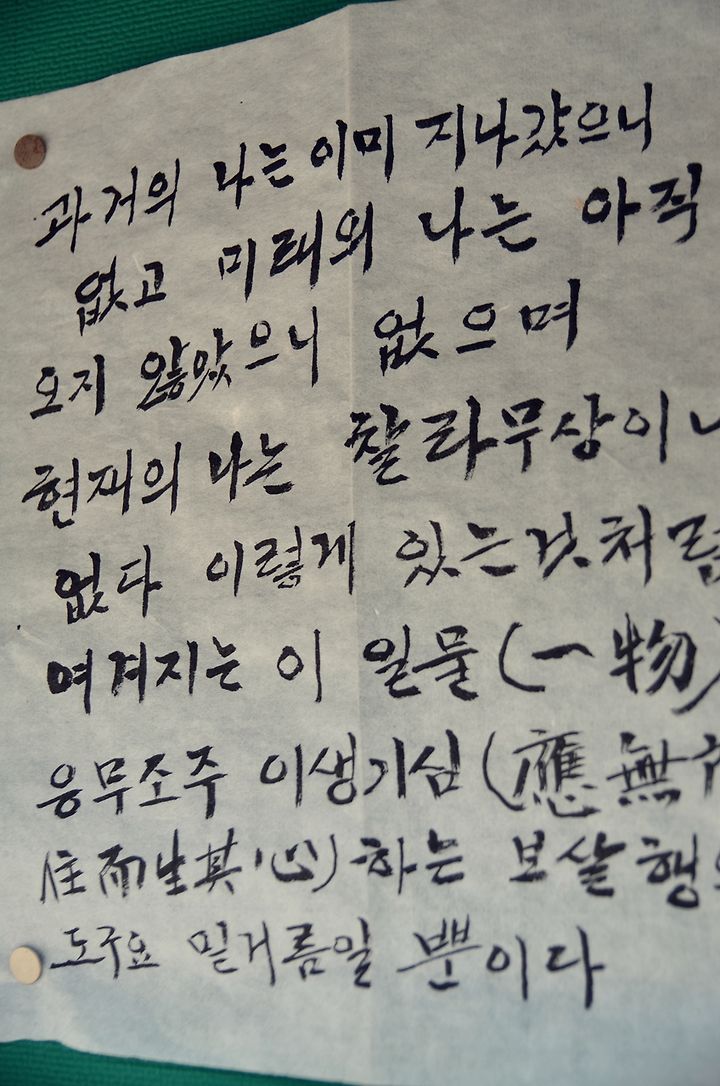 과거의 나는 이미 지나갔으니
없고 미래의 나는 아직
오지 않았으니 없으며
현재의 나는 찰라무상이니
없다 이렇게 있는것처럼
여겨지는 이 일물(一物)
응무조주 이생기심(應無
住而生其心)하는 보살행
도구요 밑거름일 뿐이다